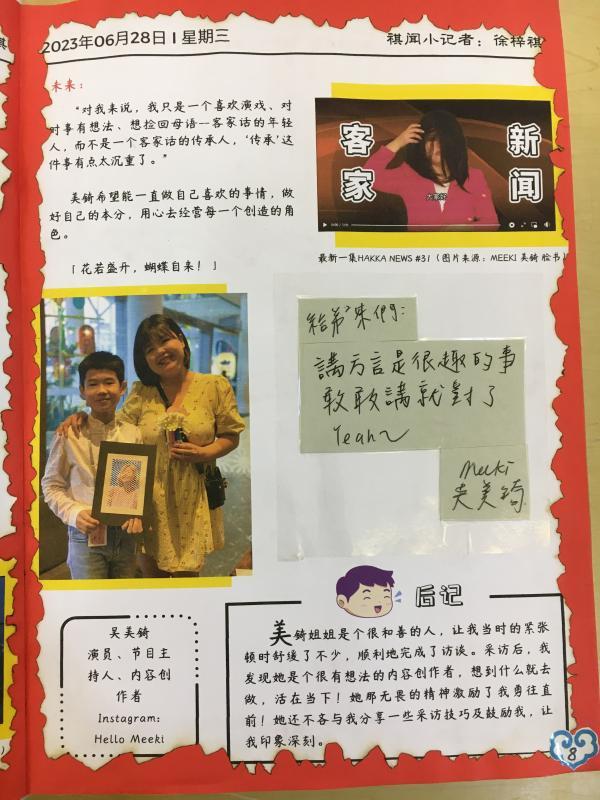 2023年06月28日 I 星期三
祺闻小记者：徐梓祺
未来：
“对我来说，我只是一个喜欢演戏、对
对事有想法、想捡回母语--客家话的年轻
人，而不是一个客家话的传承人，‘传承’这
件事有点太沉重了。”
美锜希望能一直做自己喜欢的事情，做
好自己的本分，用心去经营每一个创造的角
色。
「花若盛开，蝴蝶自来！」
客家
新闻
大家好
最新一集HAKKA NEWS #31（图片来源：MEEKI 美锜 脸书）
給弟妹們：
講方言是很趣的事
敢敢講就對了
Yeah~
Meeki
吴美锜
吴美锜
演员、节目主
持人、内容创
作者
Instagram:
Hello Meeki
后记
美锜姐姐是个很和善的人，让我当时的紧张
顿时舒缓了不少，顺利地完成了访谈。采访后，我
发现她是个很有想法的内容创作者，想到什么就去
做，活在当下！她那无畏的精神激励了我勇往直
前！她还不吝与我分享一些采访技巧及鼓励我，让
我印象深刻。
8